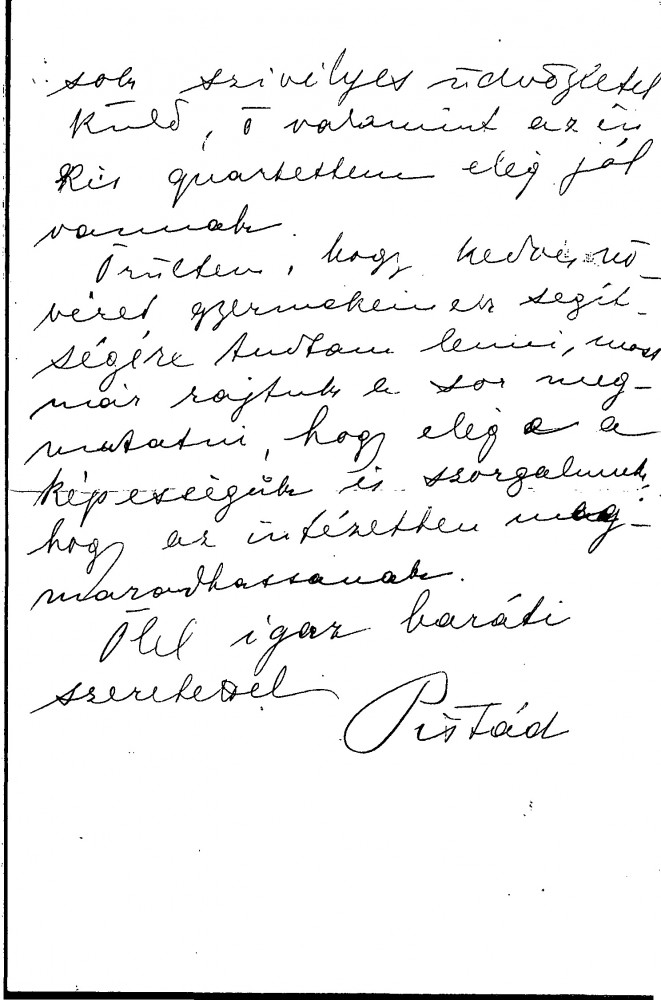 sok szivélyes üdvözletet
küld, ő valamint az én
kis quartettem elég jól
vannak.
Örültem, hogy kedves nő-
véred gyermekeinek segít-
ségére tudtam lenni, most
már rajtuk a sor meg-
mutatni, hogy elég a
képességük és szorgalmuk,
hogy az intézetben meg-
maradhassanak.
Ölel igaz baráti
szeretettel
Pistád